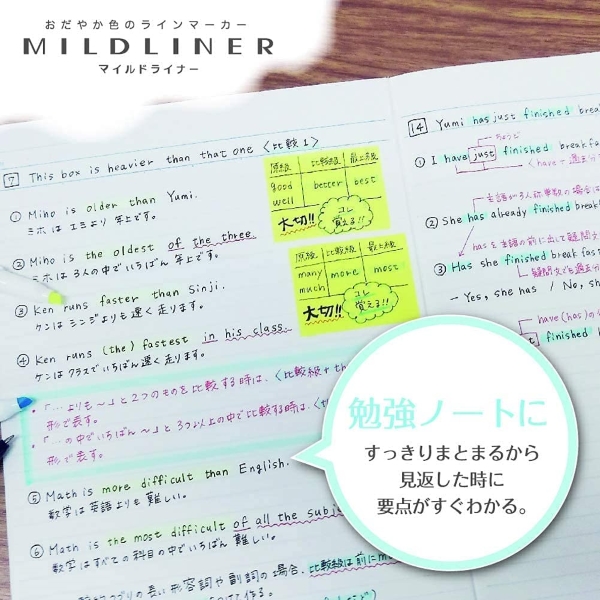 おだやか色のラインマーカー
MILDLINER
マイルドライナー
7 This box is heavier than that one 〈比較1〉
① Miho is older than Yumi.
ミホはユミより年上です。
② Miho is the oldest of the three.
ミホは3人の中でいちばん年上です。
③ Ken runs faster than Sinji.
ケンはシンジよりも速く走ります。
④ Ken runs (the) fastest in his class.
ケンはクラスでいちばん速く走ります。
・「…よりも〜」と2つのものを比較する時は、〈比較級+th
形で表す。
・「…の中でいちばん〜」と3つ以上の中で比較する時は、〈
形で表す。
⑤ Math is more difficult than English.
数学は英語よりも難しい。
⑥ Math is the most difficult of all the subj
数学はすべての科目の中でいちばん難しい。
長い形容詞や副詞の場合、比較級は前にm
原級 比較級 最上級
good better best
well
大切!! コレ覚える!!
原級 比較級 最上級
many more most
much
大切!! コレ覚える!!
14 Yumi has just finished brea
ちょうど
① I have just finished breakfa
〈haveで過去分
主語が3人称単数の場合は
② She has already finished break
hasを主語の前に出して疑問文
③ Has she finished break fast
疑問文も過去分
- Yes, she has / No, sh
have(has)の
finished b
勉強ノートに
すっきりまとまるから
見返した時に
要点がすぐわかる。